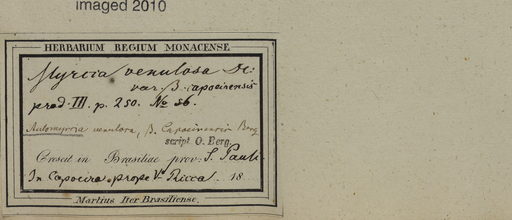 imaged 2010
HERBARIUM REGIUM MONACENSE
Myrcia venulosa DC.
var. β. capoeirensis
prod. III. p. 250. No 56.
Automyrcia venulosa, β. Capoeirensis Berg
script. O. Berg.
Crescit in Brasiliae prov. S. Pauli
In Capoeira prope Va Ricca. 18
Martius Iter Brasiliense.